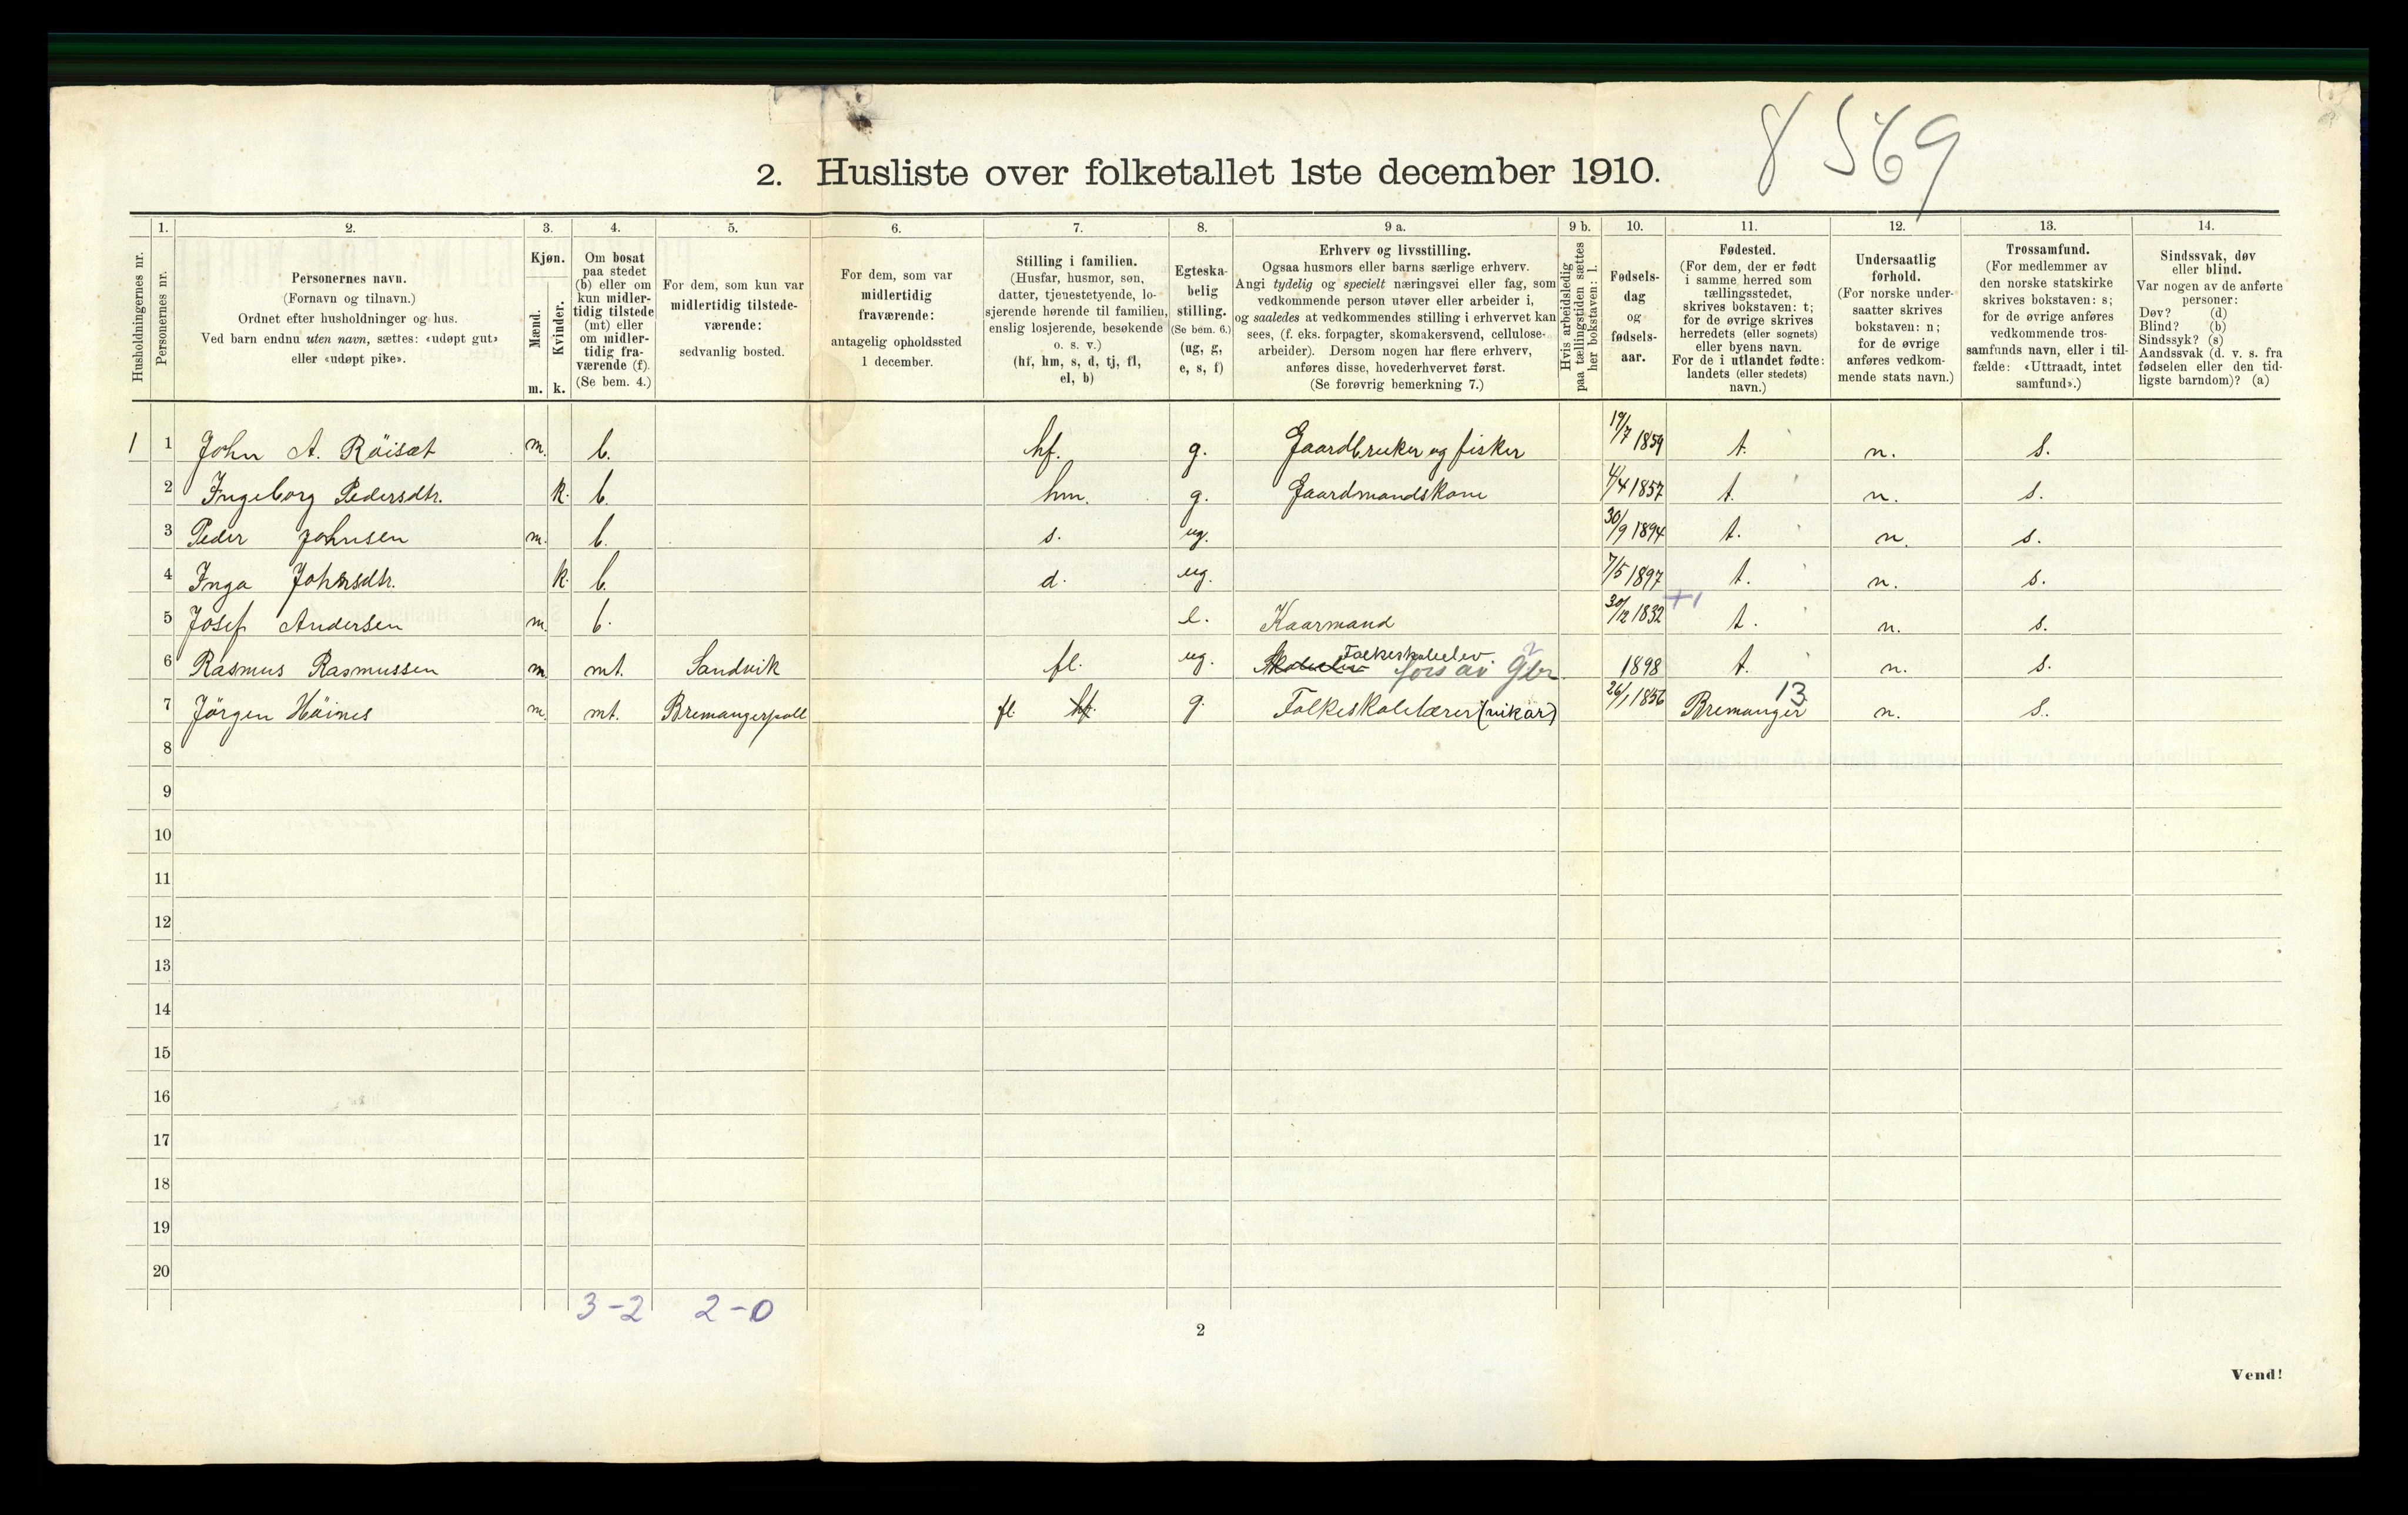 8 569
2. Husliste over folketallet 1ste december 1910.
1. 2. 3. 4. 5. 6. 7. 8. 9 a. 9 b. 10. 11. 12. 13. 14.
Husholdningernes nr.
Personernes nr.
Personernes navn.
(Fornavn og tilnavn.)
Ordnet efter husholdninger og hus.
Ved barn endnu uten navn, sættes: «udøpt gut»
eller «udøpt pike».
Kjøn.
Mænd.
Kvinder.
m. k.
Om bosat
paa stedet
(b) eller om
kun midler-
tidig tilstede
(mt) eller
om midler-
tidig fra-
værende (f).
(Se bem. 4.)
For dem, som kun var
midlertidig tilstede-
værende:
sedvanlig bosted.
For dem, som var
midlertidig
fraværende:
antagelig opholdssted
1 december.
Stilling i familien.
(Husfar, husmor, søn,
datter, tjenestetyende, lo-
sjerende hørende til familien,
enslig losjerende, besøkende
o. s. v.)
(hf, hm, s, d, tj, fl,
el, b)
Egteska-
belig
stilling.
(Se bem. 6.)
(ug, g,
e, s, f)
Erhverv og livsstilling.
Ogsaa husmors eller barns særlige erhverv.
Angi tydelig og specielt næringsvei eller fag, som
vedkommende person utøver eller arbeider i,
og saaledes at vedkommendes stilling i erhvervet kan
sees, (f. eks. forpagter, skomakersvend, cellulose-
arbeider). Dersom nogen har flere erhverv,
anføres disse, hovederhvervet først.
(Se forøvrig bemerkning 7.)
Hvis arbeidsledig
paa tællingstiden sættes
her bokstaven: l.
Fødsels-
dag
og
fødsels-
aar.
Fødested.
(For dem, der er født
i samme herred som
tællingsstedet,
skrives bokstaven: t;
for de øvrige skrives
herredets (eller sognets)
eller byens navn.
For de i utlandet fødte:
landets (eller stedets)
navn.)
Undersaatlig
forhold.
(For norske under-
saatter skrives
bokstaven: n;
for de øvrige
anføres vedkom-
mende stats navn.)
Trossamfund.
(For medlemmer av
den norske statskirke
skrives bokstaven: s;
for de øvrige anføres
vedkommende tros-
samfunds navn, eller i til-
fælde: «Uttraadt, intet
samfund».)
Sindssvak, døv
eller blind.
Var nogen av de anførte
personer:
Døv? (d)
Blind? (b)
Sindssyk? (s)
Aandssvak (d. v. s. fra
fødselen eller den tid-
ligste barndom)? (a)
1 1 John A. Röisæt m. b. hf. g. Gaardbruker og fisker 19/7 1859 t. n. s.
2 Ingeborg Pedersdtr. k. b. hm. g. Gaardmandskone 4/4 1857 t. n. s.
3 Peder Johnsen m. b. s. ug. 30/9 1894 t. n. s.
4 Inga Johnsdtr. k. b. d. ug. 7/5 1897 t. n. s.
5 Josef Andersen m. b. e. Kaarmand 30/12 1832 t. n. s.
6 Rasmus Rasmussen m. mt. Sandvik fl. ug. Skoleelev Folkeskoleelev. fors av Gbr 1898 t. n. s.
7 Jörgen Höines m. mt. Bremangerpoll fl hf. g. Folkeskolelærer (vikar) 26/1 1856 Bremanger 13 n. s.
8
9
10
11
12
13
14
15
16
17
18
19
20
3-2 2-0
2
Vend!